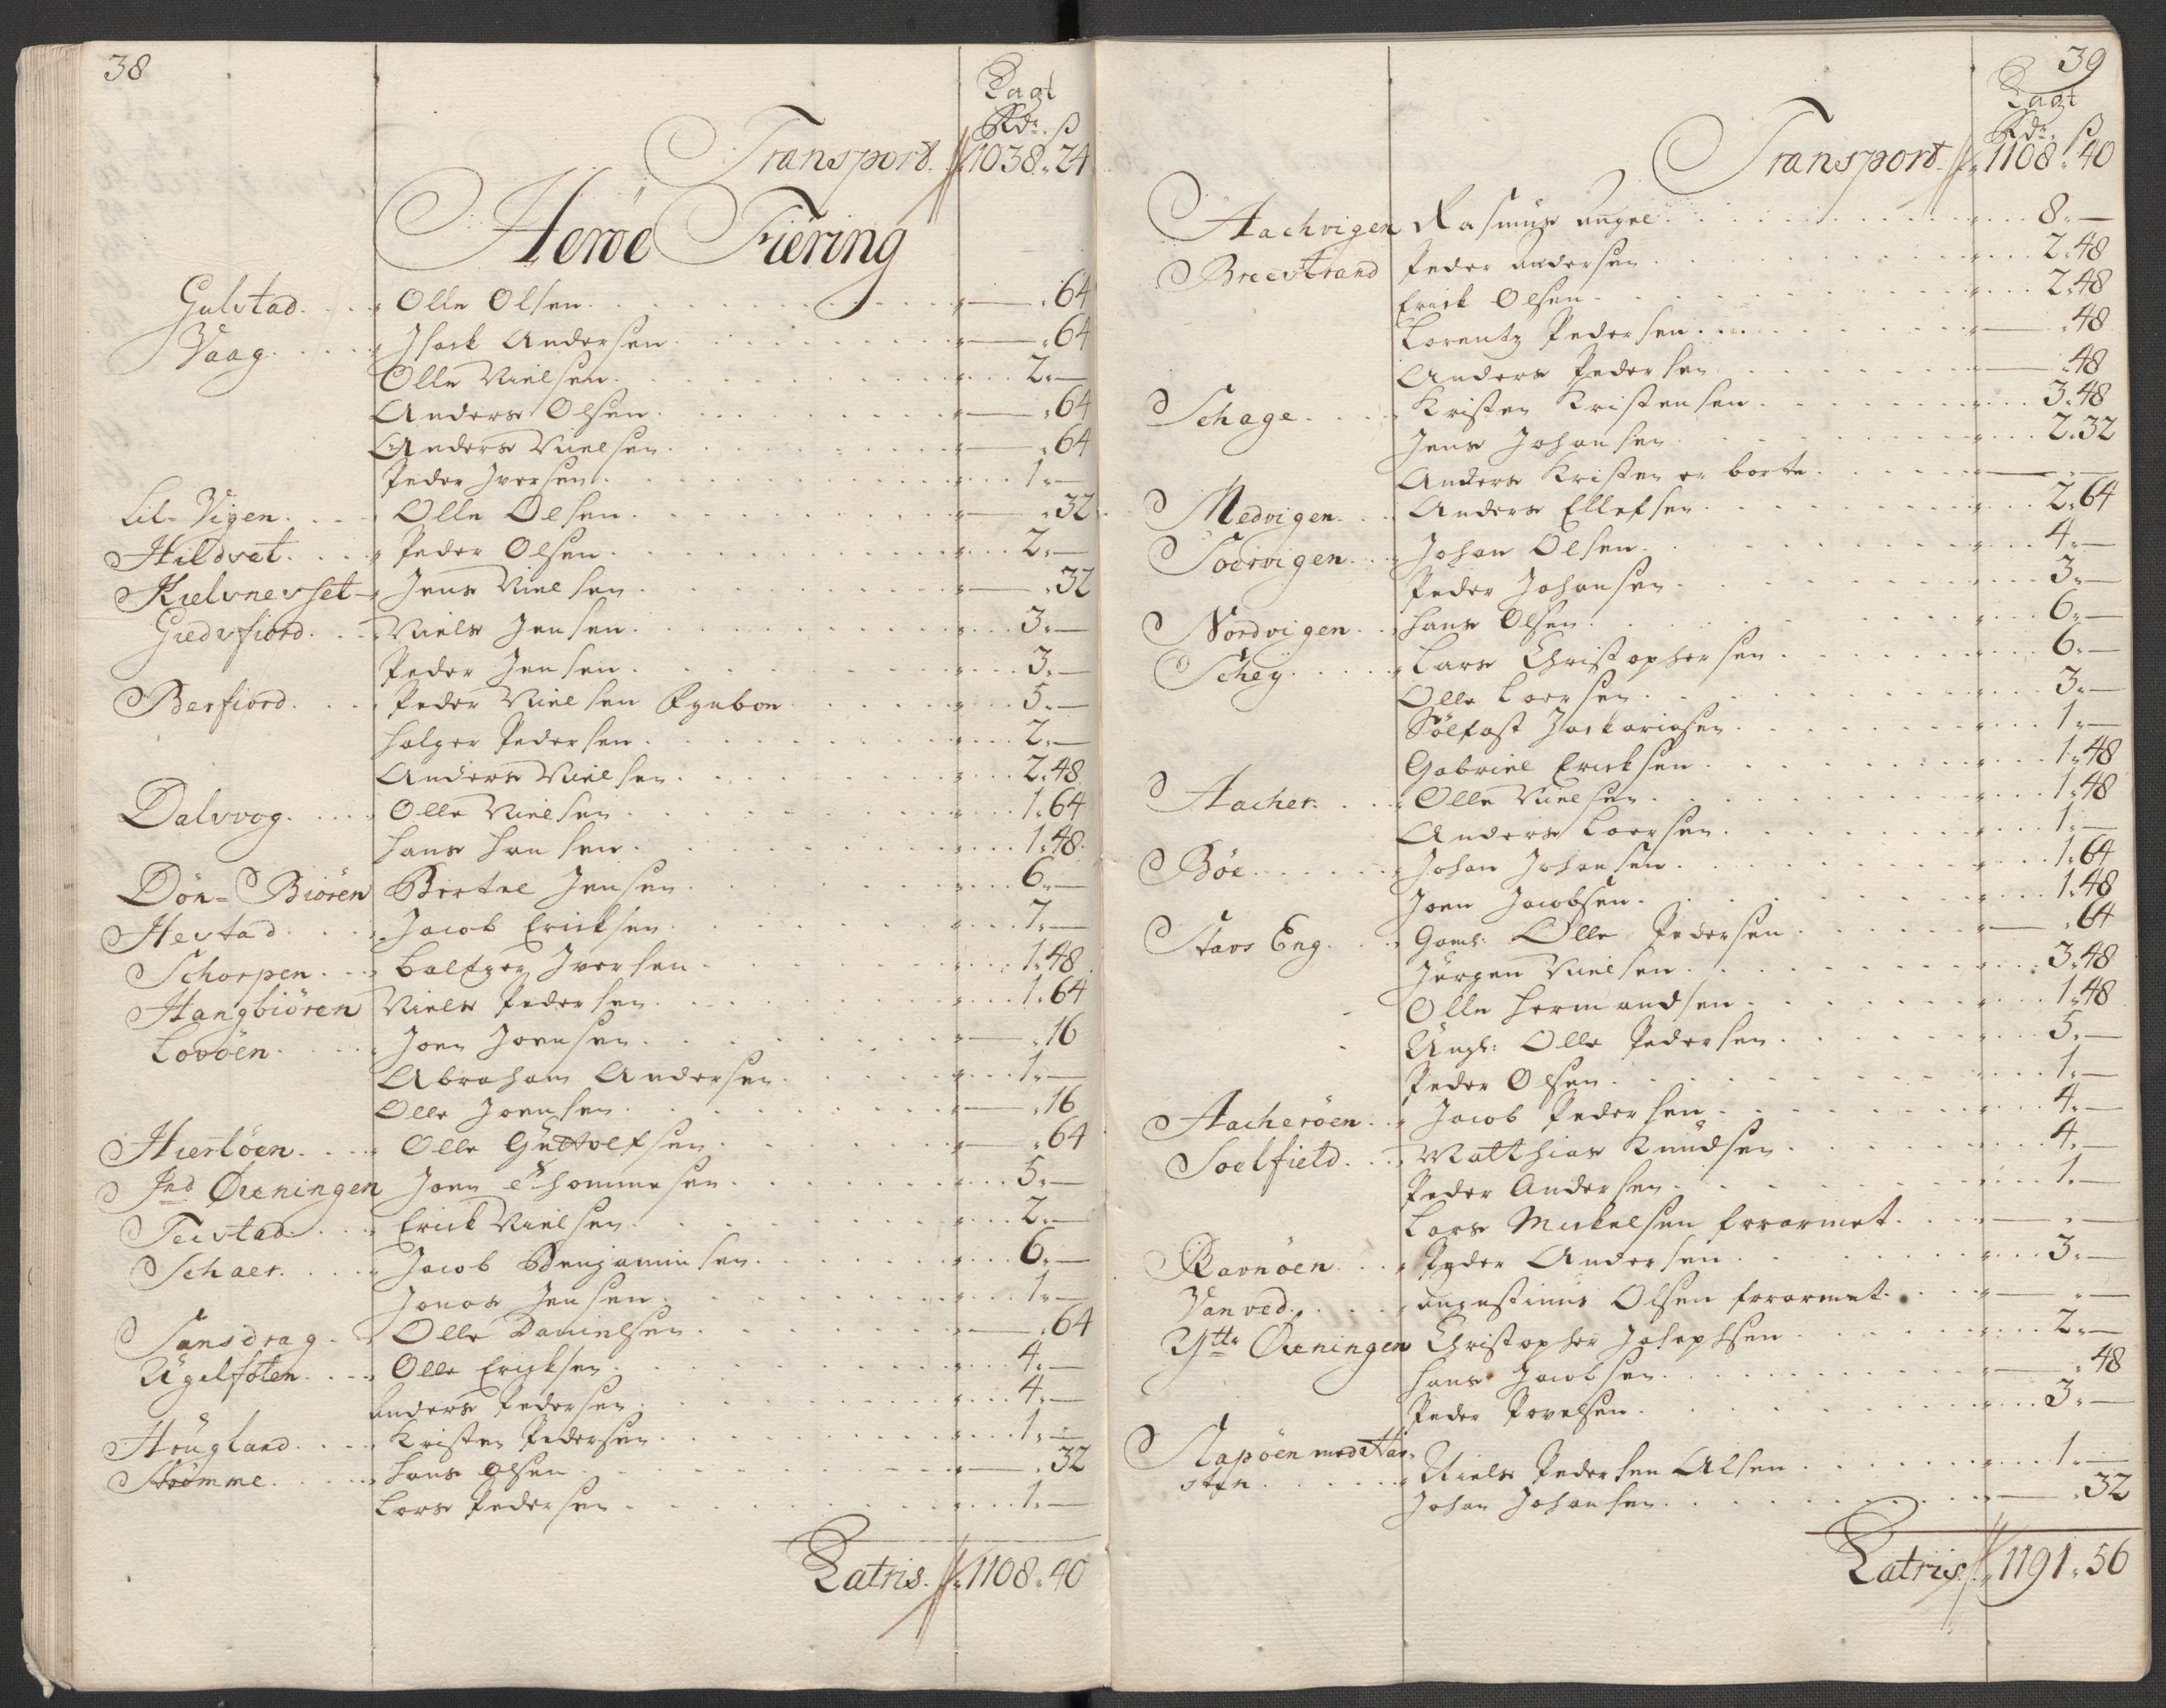 38
Lagt
Rdr. ß
Transport. 1038. 24
Heröe Fiering
Gulstad. Olle Olsen. — . 64
Vaag. Isack Andersen — . 64
Olle Nielsen. 2. —
Anders Olsen. — . 64
Anders Nielsen. — . 64
Peder Iversen. 1. —
Lil-Vigen. Olle Olsen. — . 32
Hildset. Peder Olsen. 2. —
Kielsnesset Jens Nielsen — . 32
Giedsfiord. Niels Jensen. 3. —
Peder Jensen. 3. —
Berfiord. Peder Nielsen 5. —
Holger Pedersen. 2. —
Anders Nielsen. 2. 48
Dalsvog. Olle Nielsen 1. 64
Hans Hansen. 1. 48.
Dön-Biören Bertel Jensen 6. —
Hestad. Jacob Ericksen. 7. —
Schorpen. Baltzer Iversen 1. 48
Hangbiören Niels Pedersen. 1. 64
Lovöen. Joen Joensen. — . 16
Abraham Andersen. 1. —
Olle Joensen. — . 16
Hiertöen. Olle Guttolfsen. — . 64
Ind Öxeningen Joen Thommesen. 5. —
Teistad. Erick Nielsen. 2. —
Schaer. Jacob Benjaminsen. 6. —
Jonas Jensen. 1. —
Sansdrag. Olle Danielsen. — . 64
Ugelfoten. Olle Ericksen. 4. —
Anders Pedersen. 4. —
Höugland. Kristen Pedersen. 1. —
Strömme. Hans Olsen. — . 32
Lars Pedersen. 1. —
Latris. 1108. 40
39
Lagt
Rdr. ß
Transport. 1108. 40
Aachvigen Rasmus Angel. 8. —
Breestrand Peder Andersen. 2. 48
Erick Olsen. 2. 48
Lorentz Pedersen. . 48
Anders Pedersen — . 48
Schage. Kristen Kristensen 3. 48
Jens Johansen 2. 32
Anders Kristen er borte. — . —
Medvigen. Anders Ellefsen. 2. 64
Soervigen. Johan Olsen. 4. —
Peder Johansen. 3. —
Nordvigen. Hans Olsen. 6. —
Schey. Lars Christophersen. 6. —
Olle Larsen. 3. —
Sölfast Zackariasen. 1. —
Gabriel Ericksen. 1. 48
Aacher. Olle Nielsen. 1. 48
Anders Larsen. 1. —
Böe. Johan Johansen. 1. 64
Joen Jacobsen. 1. 48
Stavs Eng. Gaml: Olle Pedersen — . 64
Jörgen Nielsen. 3. 48
Olle Hermandsen. 1. 48
Ungh: Olle Pedersen. 5. —
Peder Olsen. 1. —
Aacheröen. Jacob Pedersen. 4. —
Soelfield. Matthias Knudsen. 4. —
Peder Andersen. 1. —
Lars Mickelsen forarmet. — . —
Ravnöen. Peder Andersen. 3. —
Vanved. Augustinus Olsen forarmet. — . —
Yttr Öxeningen Christopher Josephsen 2. —
Hans Jacobsen. — . 48
Peder Povelsen. 3. —
Slapöen med Har-
sten. Niels Pedersen Alsen. 1. —
Johan Johansen. — . 32
Latris. 1191. 56